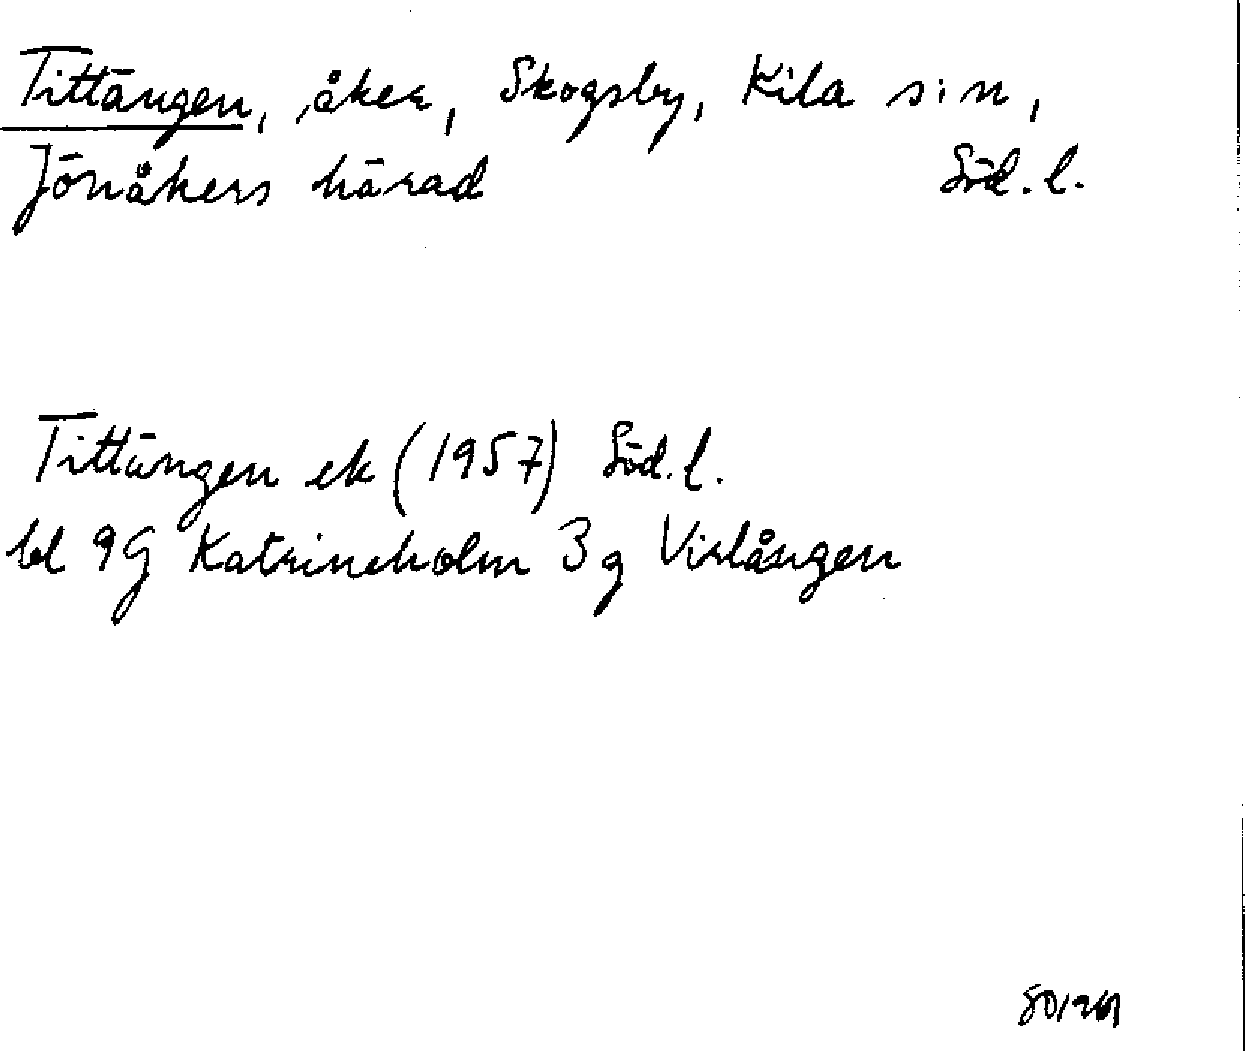 Tittängen, åker, Skogsby, Kila s:n,
Jönåkers härad Söd. l.
Tittängen ek (1957) Söd. l.
bl 9G Katrineholm 3g Virlången